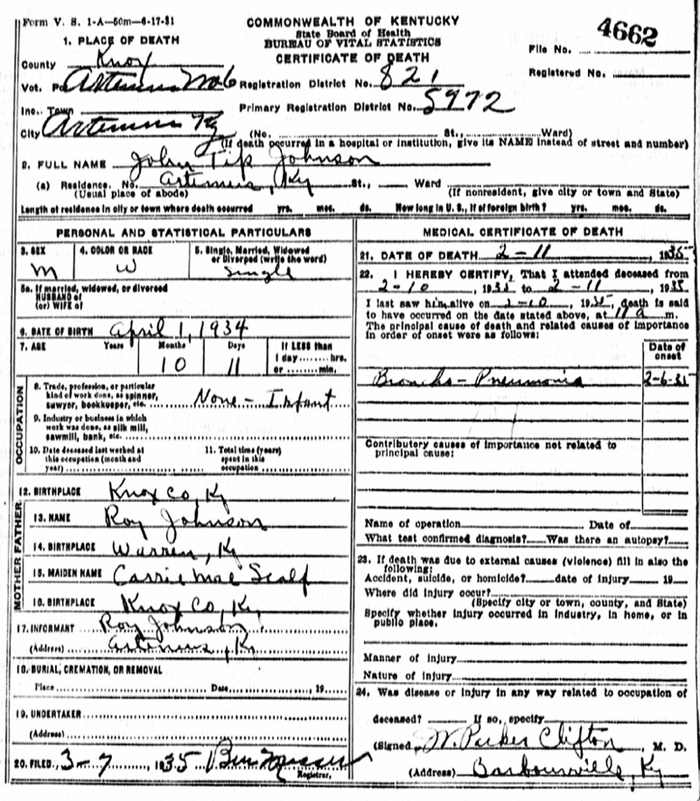 Form V. S. 1-A—50m—6-17-31
COMMONWEALTH OF KENTUCKY
State Board of Health
BUREAU OF VITAL STATISTICS
CERTIFICATE OF DEATH
4662
File No.
Registered No.
1. PLACE OF DEATH
County Knox
Vot. Artemus No 6 Registration District No. 821
Inc. Town Primary Registration District No. 5972
City Artemus Ky (No. St., Ward)
(If death occurred in a hospital or institution, give its NAME instead of street and number)
2. FULL NAME John Tip Johnson
(a) Residence. No. Artemus, Ky St., Ward
(Usual place of abode) (If nonresident, give city or town and State)
Length of residence in city or town where death occurred yrs. mos. ds. How long in U. S., if of foreign birth? yrs. mos. ds.
PERSONAL AND STATISTICAL PARTICULARS
3. SEX 4. COLOR OR RACE 5. Single, Married, Widowed or Divorced (write the word)
M W Single
5a. If married, widowed, or divorced
HUSBAND of
(or) WIFE of
6. DATE OF BIRTH April 1, 1934
7. AGE Years Months Days If LESS than
10 11 1 day hrs.
or min.
OCCUPATION
8. Trade, profession, or particular
kind of work done, as spinner,
sawyer, bookkeeper, etc. None - Infant
9. Industry or business in which
work was done, as silk mill,
sawmill, bank, etc.
10. Date deceased last worked at
this occupation (month and
year)
11. Total time (years)
spent in this
occupation
12. BIRTHPLACE Knox Co, Ky
FATHER
13. NAME Roy Johnson
14. BIRTHPLACE Warren, Ky
MOTHER
15. MAIDEN NAME Carrie Mae Scalf
16. BIRTHPLACE Knox Co, Ky
17. INFORMANT Roy Johnson
(Address) Artemus, Ky
18. BURIAL, CREMATION, OR REMOVAL
Place Date , 19
19. UNDERTAKER
(Address)
20. FILED 3-7 1935 Ben
Registrar.
MEDICAL CERTIFICATE OF DEATH
21. DATE OF DEATH 2-11 , 1935
22. I HEREBY CERTIFY, That I attended deceased from
2-10 , 1935 to 2-11 , 1935
I last saw him alive on 2-10 , 1935, death is said
to have occurred on the date stated above, at 11 a m.
The principal cause of death and related causes of importance
in order of onset were as follows:
Date of
onset
Broncho-Pneumonia 2-6-35
Contributory causes of importance not related to
principal cause:
Name of operation Date of
What test confirmed diagnosis? Was there an autopsy?
23. If death was due to external causes (violence) fill in also the
following:
Accident, suicide, or homicide? date of injury 19
Where did injury occur?
(Specify city or town, county, and State)
Specify whether injury occurred in industry, in home, or in
public place.
Manner of injury
Nature of injury
24. Was disease or injury in any way related to occupation of
deceased? If so, specify
(Signed) W. Parker Clifton , M. D.
(Address) Barbourville, Ky